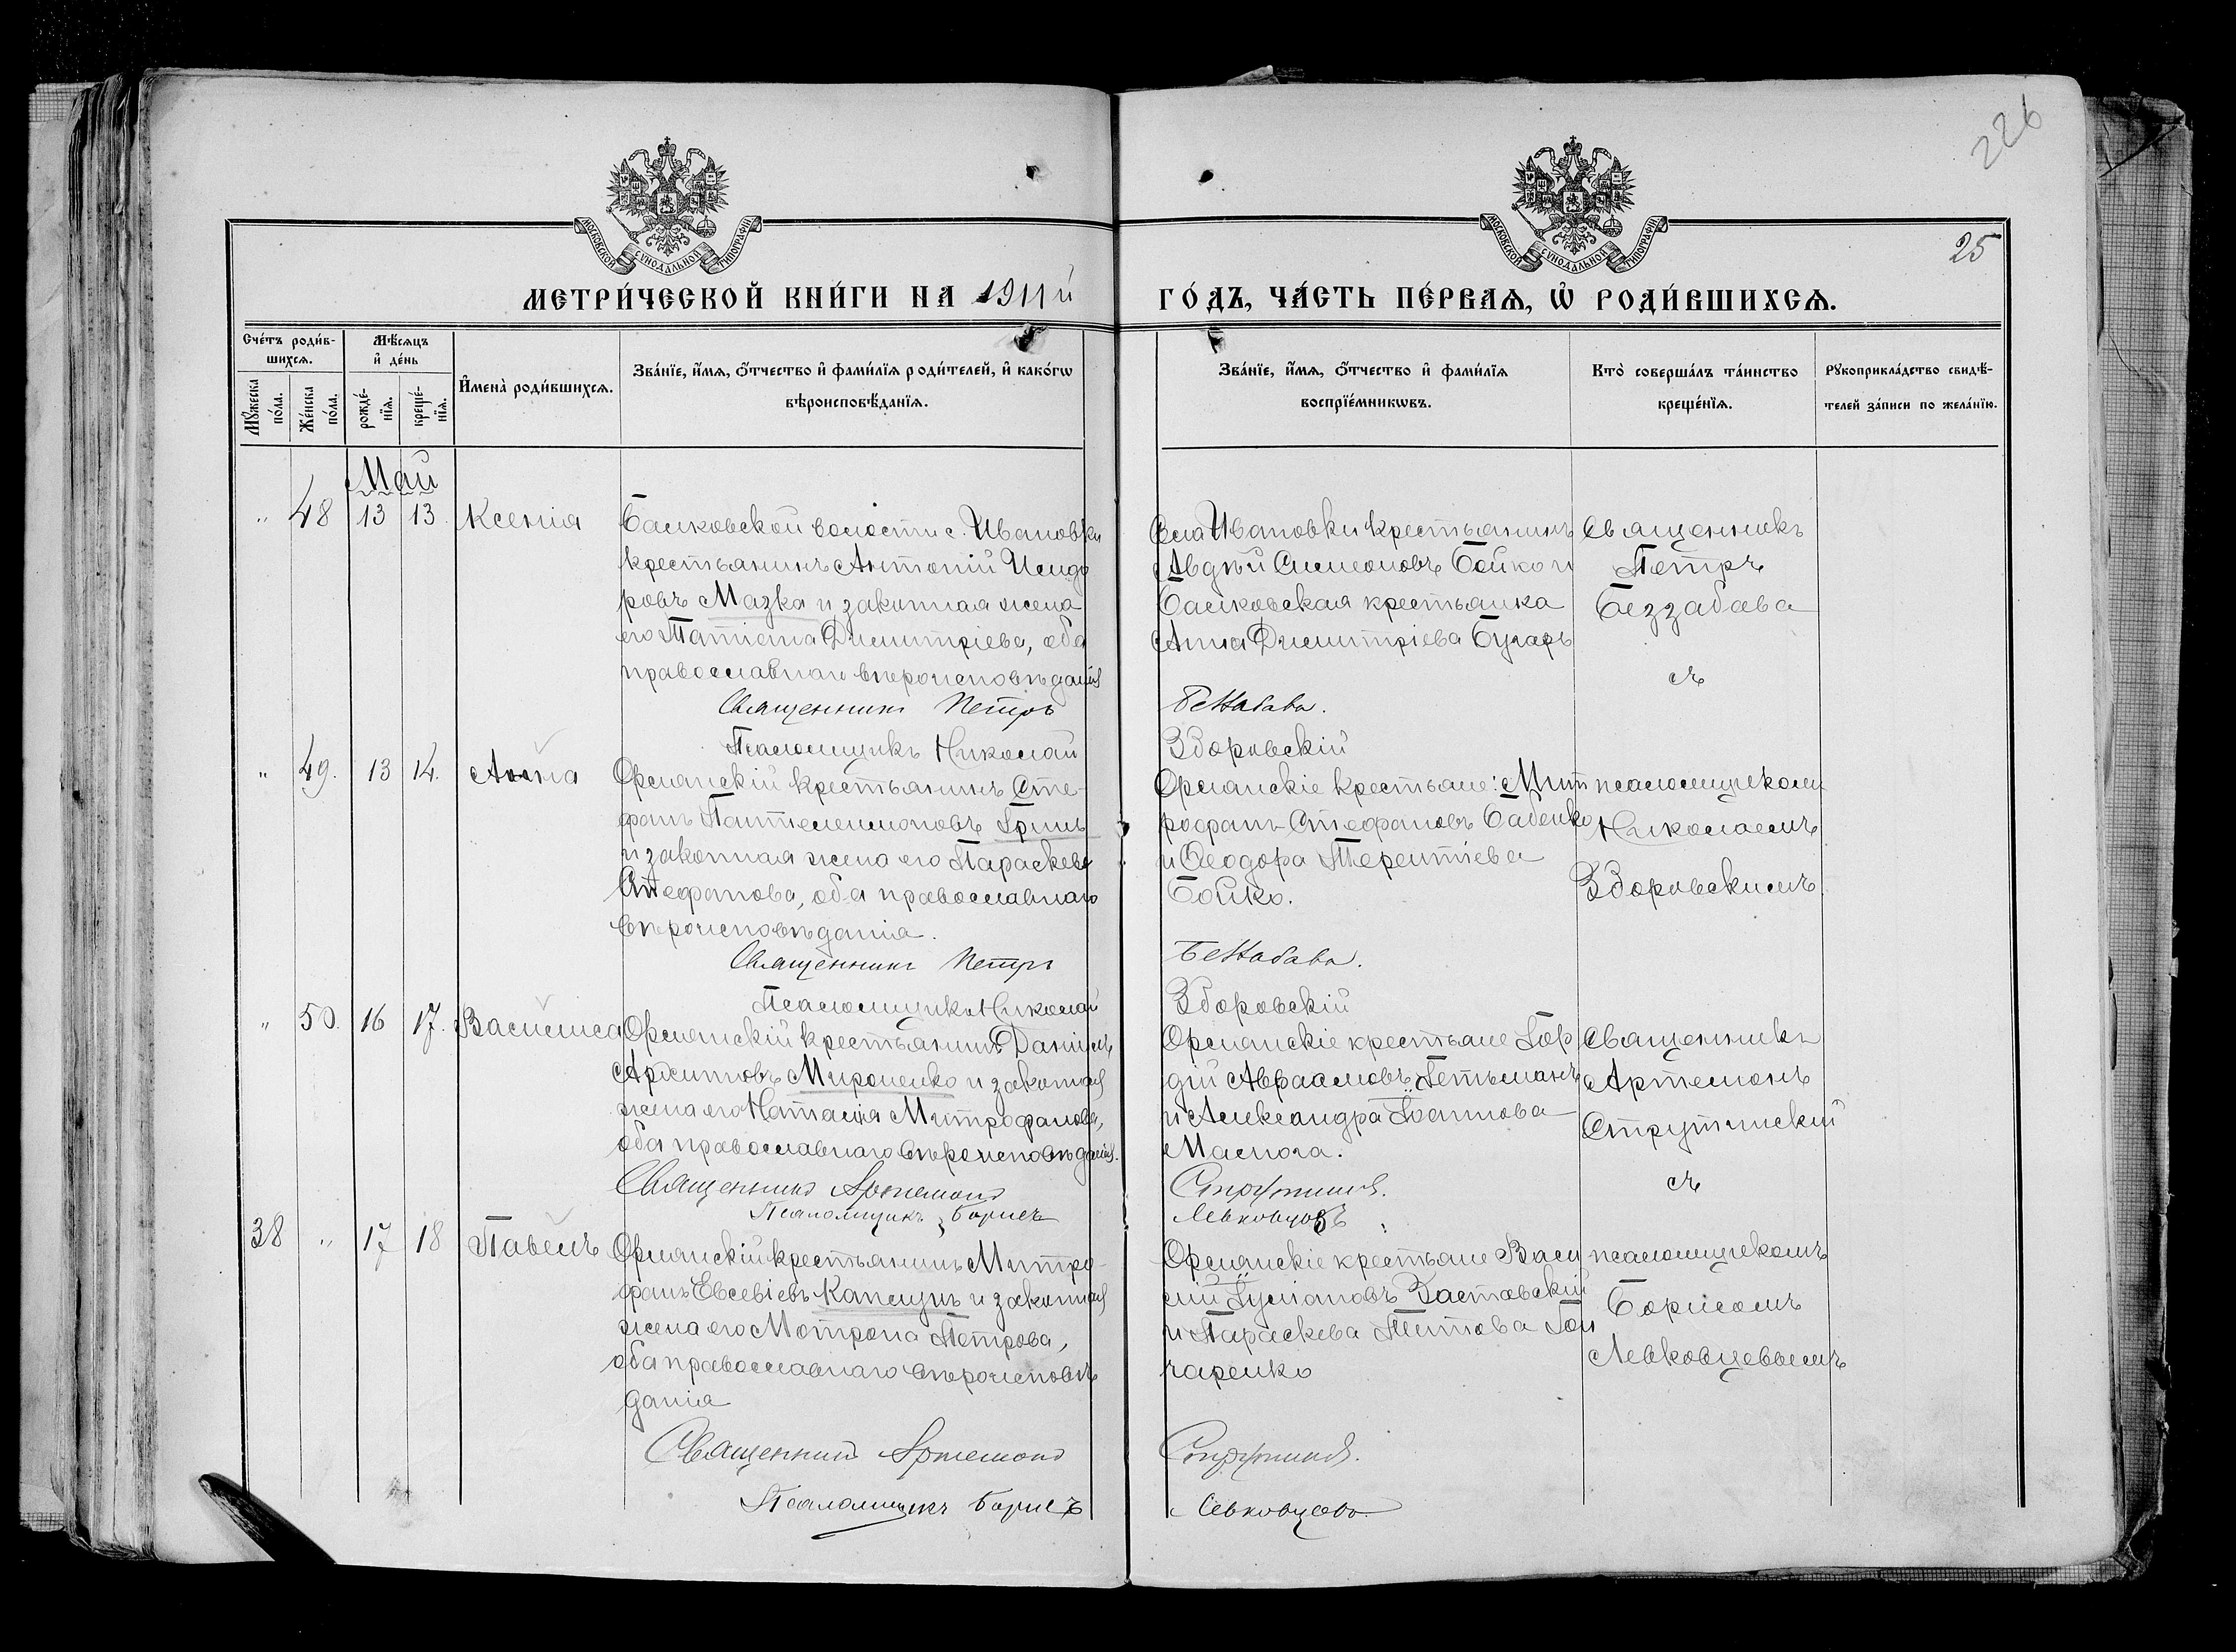 226
МОСКОВСКОЙ СУНОДАЛЬНОЙ ТИПОГРАФІИ
МОСКОВСКОЙ СУНОДАЛЬНОЙ ТИПОГРАФІИ
25
МЕТРИ́ЧЕСКОЙ КНИ́ГИ НА 1911й
ГО́ДЪ, ЧА́СТЬ ПЕ́РВАЯ, Ѡ҆ РОДИ́ВШИХСЯ.
Сче́тъ роди́в-
шихся.
Мꙋжеска по́ла.
Же́нска по́ла.
Мѣ́сяцъ
и҆ де́нь
рожде́-
нїя.
креще́-
нїя.
И҆мена̀ роди́вшихся.
Зва́нїе, и҆́мя, ѻ҆́тчество и҆ фами́лїя роди́телей, и҆ како́гѡ
вѣроисповѣ́данїя.
Зва́нїе, и҆́мя, ѻ҆́тчество и҆ фами́лїя
воспрїе́мникѡвъ.
Кто̀ соверша́лъ та́инство
креще́нїя.
Рꙋкоприкла́дство свидѣ́-
телей за́писи по жела́нїю.
Май
" 48 13 13 Ксенія
Балковской волости с. Ивановки
крестьянинъ Антоній Исидо
ровъ Мазка и законная жена
его Татіана Димитріева, оба
православнаго вѣроисповѣданія
Священникъ Петръ
Псаломщикъ Николай
Села Ивановки крестьянинъ
Авдѣй Симеоновъ Бойко и
Балковская крестьянка
Анна Димитріева Бугаръ
Беззабава.
Здоровскій
Священникъ
Петръ
Беззабава
съ
" 49. 13 14. Анна
Орлянскій крестьянинъ Сте-
фанъ Пантелеимоновъ Гринь
и законная жена его Параскева
Стефанова, оба православнаго
вѣроисповѣданія.
Священникъ Петръ
Псаломщикъ Николай
Орлянскіе крестьяне: Мит
рофанъ Стефановъ Бабенко
и Ѳеодора Терентіева
Бойко.
Беззабава.
Здоровскій
псаломщикомъ
Николаемъ
Здоровскимъ.
" 50. 16 17. Василиса
Орлянскій крестьянинъ Даніилъ
Архиповъ Мироненко и законная
жена его Наталія Митрофанова,
оба православнаго вѣроисповѣданія.
Священникъ Артемонъ
Псаломщикъ Борисъ
Орлянскіе крестьяне Гор
дій Авраамовъ Гетьманъ
и Александра Іоаннова
Маслюга.
Струтинскій.
Левковцовъ
Священникъ
Артемонъ
Струтинскій
съ
38 " 17 18 Павелъ
Орлянскій крестьянинъ Митро-
фанъ Евсевіевъ Капшукъ и законная
жена его Мотрона Петрова,
оба православнаго вѣроисповѣ
данія
Священникъ Артемонъ
Псаломщикъ Борисъ
Орлянскіе крестьяне Васи
лій Іуліановъ Заставскій
и Параскева Титова Гон
чаренко
Струтинскій.
Левковцевъ
псаломщикомъ
Борисомъ
Левковцевымъ